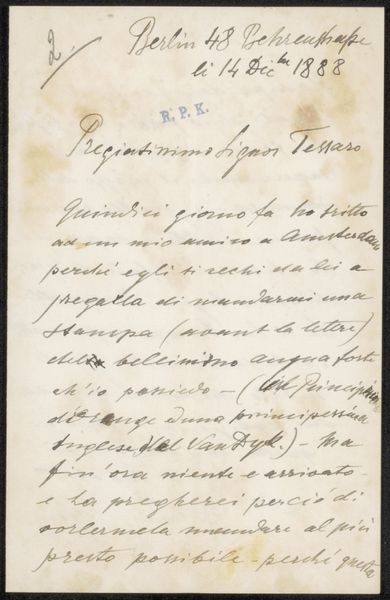 2
Berlin 48 Behrenstraße
li 14 Dicbre 1888
R. P. K.
Pregiatissimo Signor Tessaro
Quindici giorno fa ho scritto
ad un mio amico a Amsterdam
perché egli si rechi da lei a
pregarla di mandarmi una
stampa (avant la lettre)
bellissimo acqua forte
ch'io possiedo — (
una principessina
Inglese, Van Dyk.) — Ma
fin'ora niente e arrivato
e la pregherei perciò di
vorlermela mandare al piú
presto possibile — perché questa